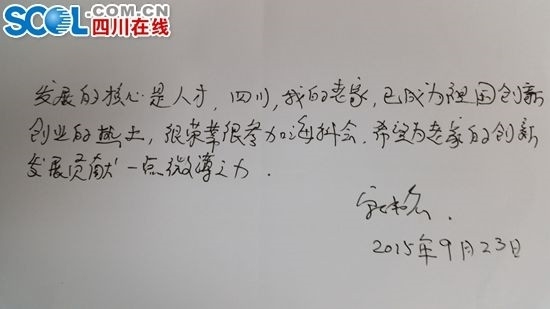 SCOL.COM.CN
四川在线
发展的核心是人才，四川，我的老家，已成为祖国创新
创业的热土，很荣幸很参加海科会，希望为老家的创新
发展贡献一点微薄之力．
2015年9月23日